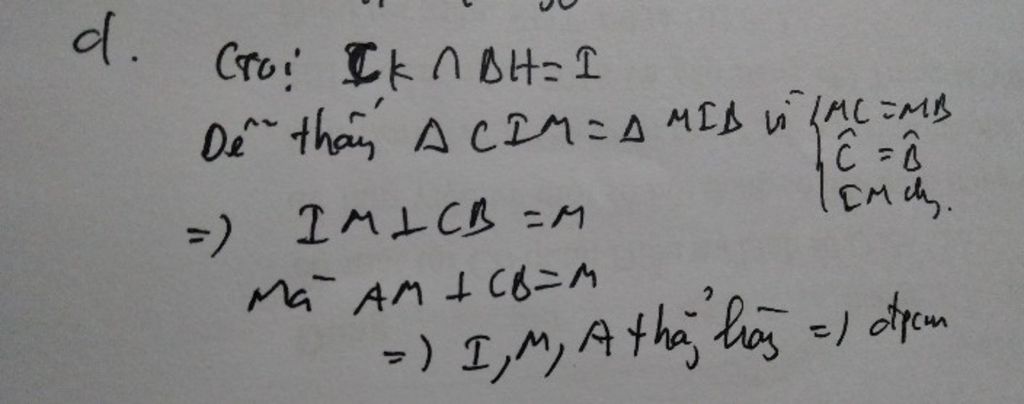 d. Gọi CK ∩ BH = I
Dễ thấy Δ CIM = Δ MIB vì { MC = MB
Ĉ = B̂
IM chg.
=) IM ⊥ CB = M
Mà AM ⊥ CB = M
=) I, M, A thẳng hàng =) đpcm